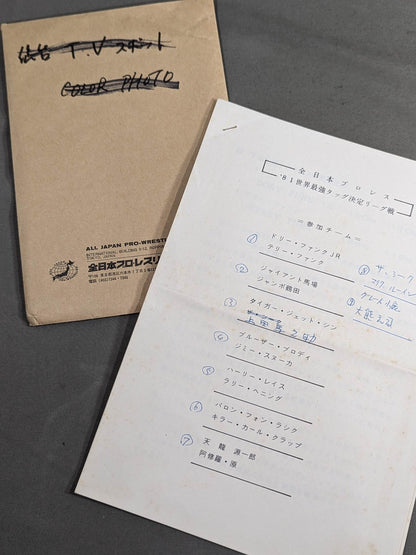 T.V スポット
COLOR PHOTO
ALL JAPAN PRO-WREST
INTERNATIONAL BUILDING
TOKYO JAPAN
全日本プロレスリ
全日本プロレス
'81世界最強タッグ決定リーグ戦
=参加チーム=
① ドリー・ファンクJR
テリー・ファンク
② ジャイアント馬場
ジャンボ鶴田
③ タイガー・ジェット・シン
上田馬之助
④ ブルーザー・ブロディ
ジミー・スヌーカ
⑤ ハーリー・レイス
ラリー・ヘニング
⑥ バロン・フォン・ラシク
キラー・カール・クラップ
⑦ 天龍 源一郎
阿修羅・原
⑧ ザ・シーク
⑨
大熊元司